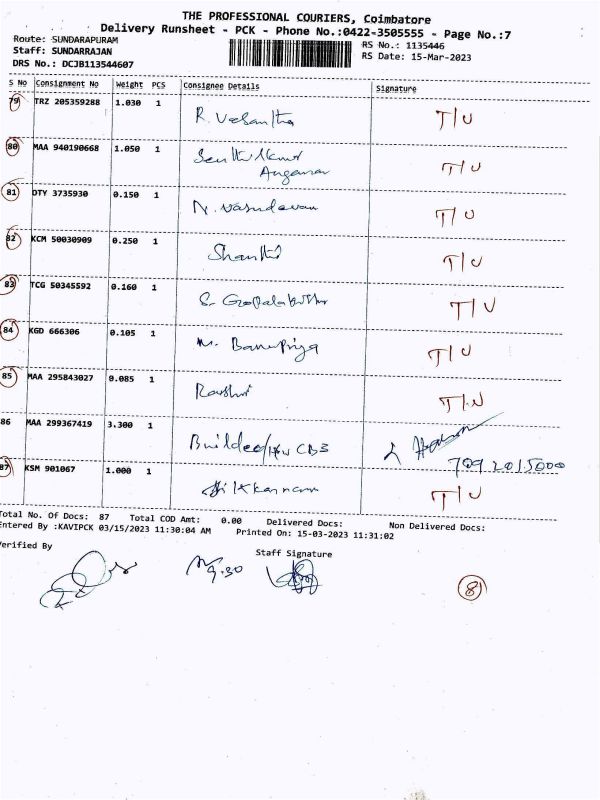 THE PROFESSIONAL COURIERS, Coimbatore
Delivery Runsheet - PCK - Phone No.:0422-3505555 - Page No.:7
Route: SUNDARAPURAM
RS No.: 1135446
Staff: SUNDARRAJAN
RS Date: 15-Mar-2023
DRS No.: DCJB113544607
S No Consignment No Weight PCS Consignee Details Signature
79 TRZ 205359288 1.030 1 R. Vasantha T/U
80 MAA 940190668 1.050 1 Senthil Kumar T/U
81 DTY 3735930 0.150 1 N. Vasudevan T/U
82 KCM 50030909 0.250 1 Shanthi T/U
83 TCG 50345592 0.160 1 S. T/U
84 KGD 666306 0.105 1 M. Banupriya T/U
85 MAA 295843027 0.085 1 T/U
86 MAA 299367419 3.300 1
7092015000
87 KSM 901067 1.000 1 T/U
Total No. Of Docs: 87 Total COD Amt: 0.00 Delivered Docs: Non Delivered Docs:
Entered By :KAVIPCK 03/15/2023 11:30:04 AM Printed On: 15-03-2023 11:31:02
Verified By
Staff Signature
9.30
8